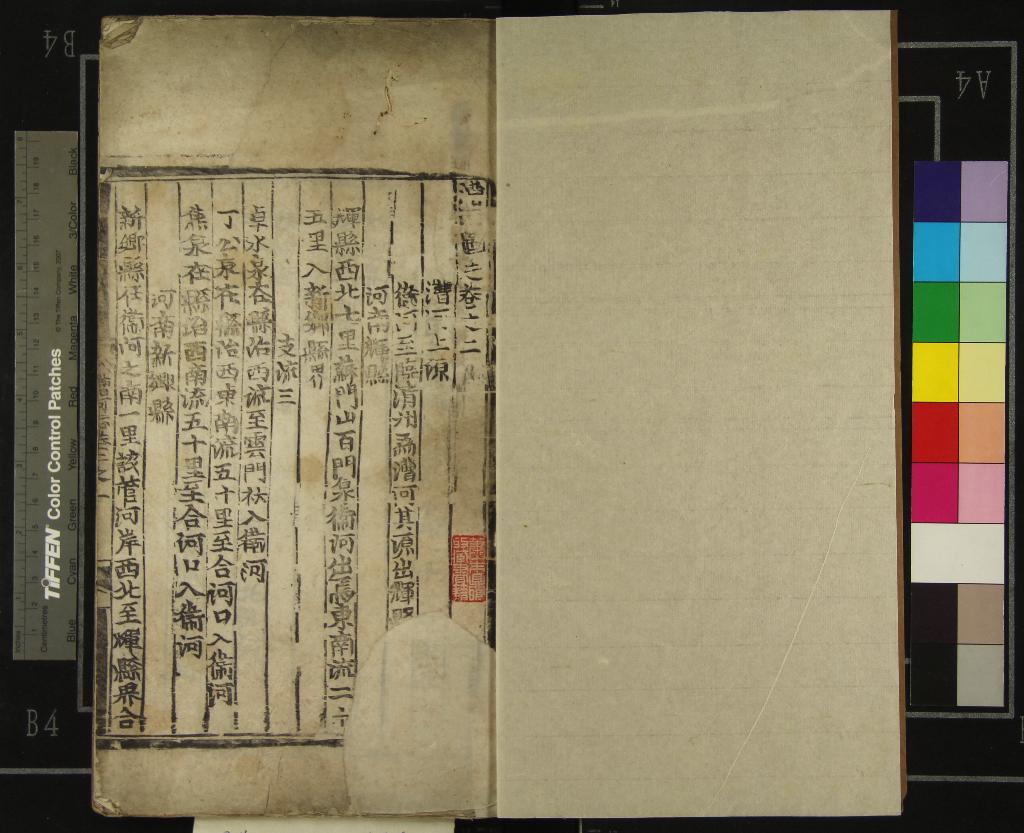 漕
之卷之二
漕河上源
衞河至臨清州為漕河其源出輝縣
河南輝縣
輝縣西北七里蘇門山百門泉衞河出焉東南流二十
五里入新鄉縣界
支流三
卓水泉在縣治西流至雲門社入衞河
丁公泉在縣治西東南流五十里至合河口入衞河
焦泉在縣治西南流五十里至合河口入衞河
河南新鄉縣
新鄉縣在衞河之南一里該管河岸西北至輝縣界合
TIFFEN Color Control Patches
© The Tiffen Company, 2007
Inches
Centimetres
Blue
Cyan
Green
Yellow
Red
Magenta
White
3/Color
Black
B4
A4
B4